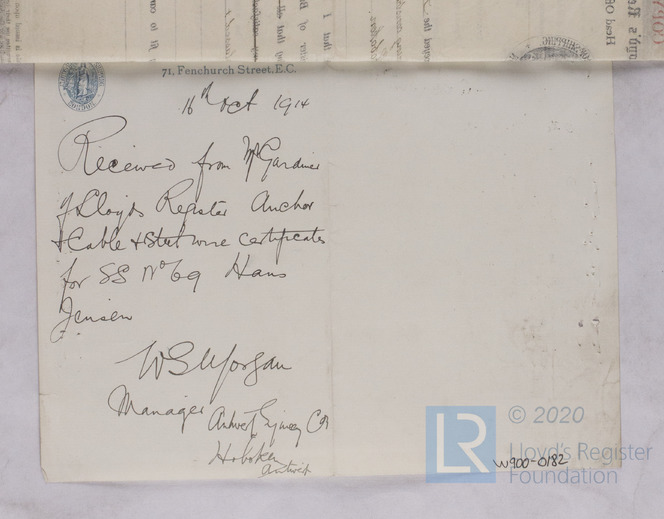 71, Fenchurch Street, E.C.
16th Oct 1914
Received from Mr Gardiner
of Lloyds Register Anchor
& Cable & Steel wire certificates
for SS No 69 Hans
Jensen
WS Morgan
Manager Antwerp Engineering Co
Hoboken
Antwerp
© 2020
LR
Lloyd's Register
Foundation
W900-0182